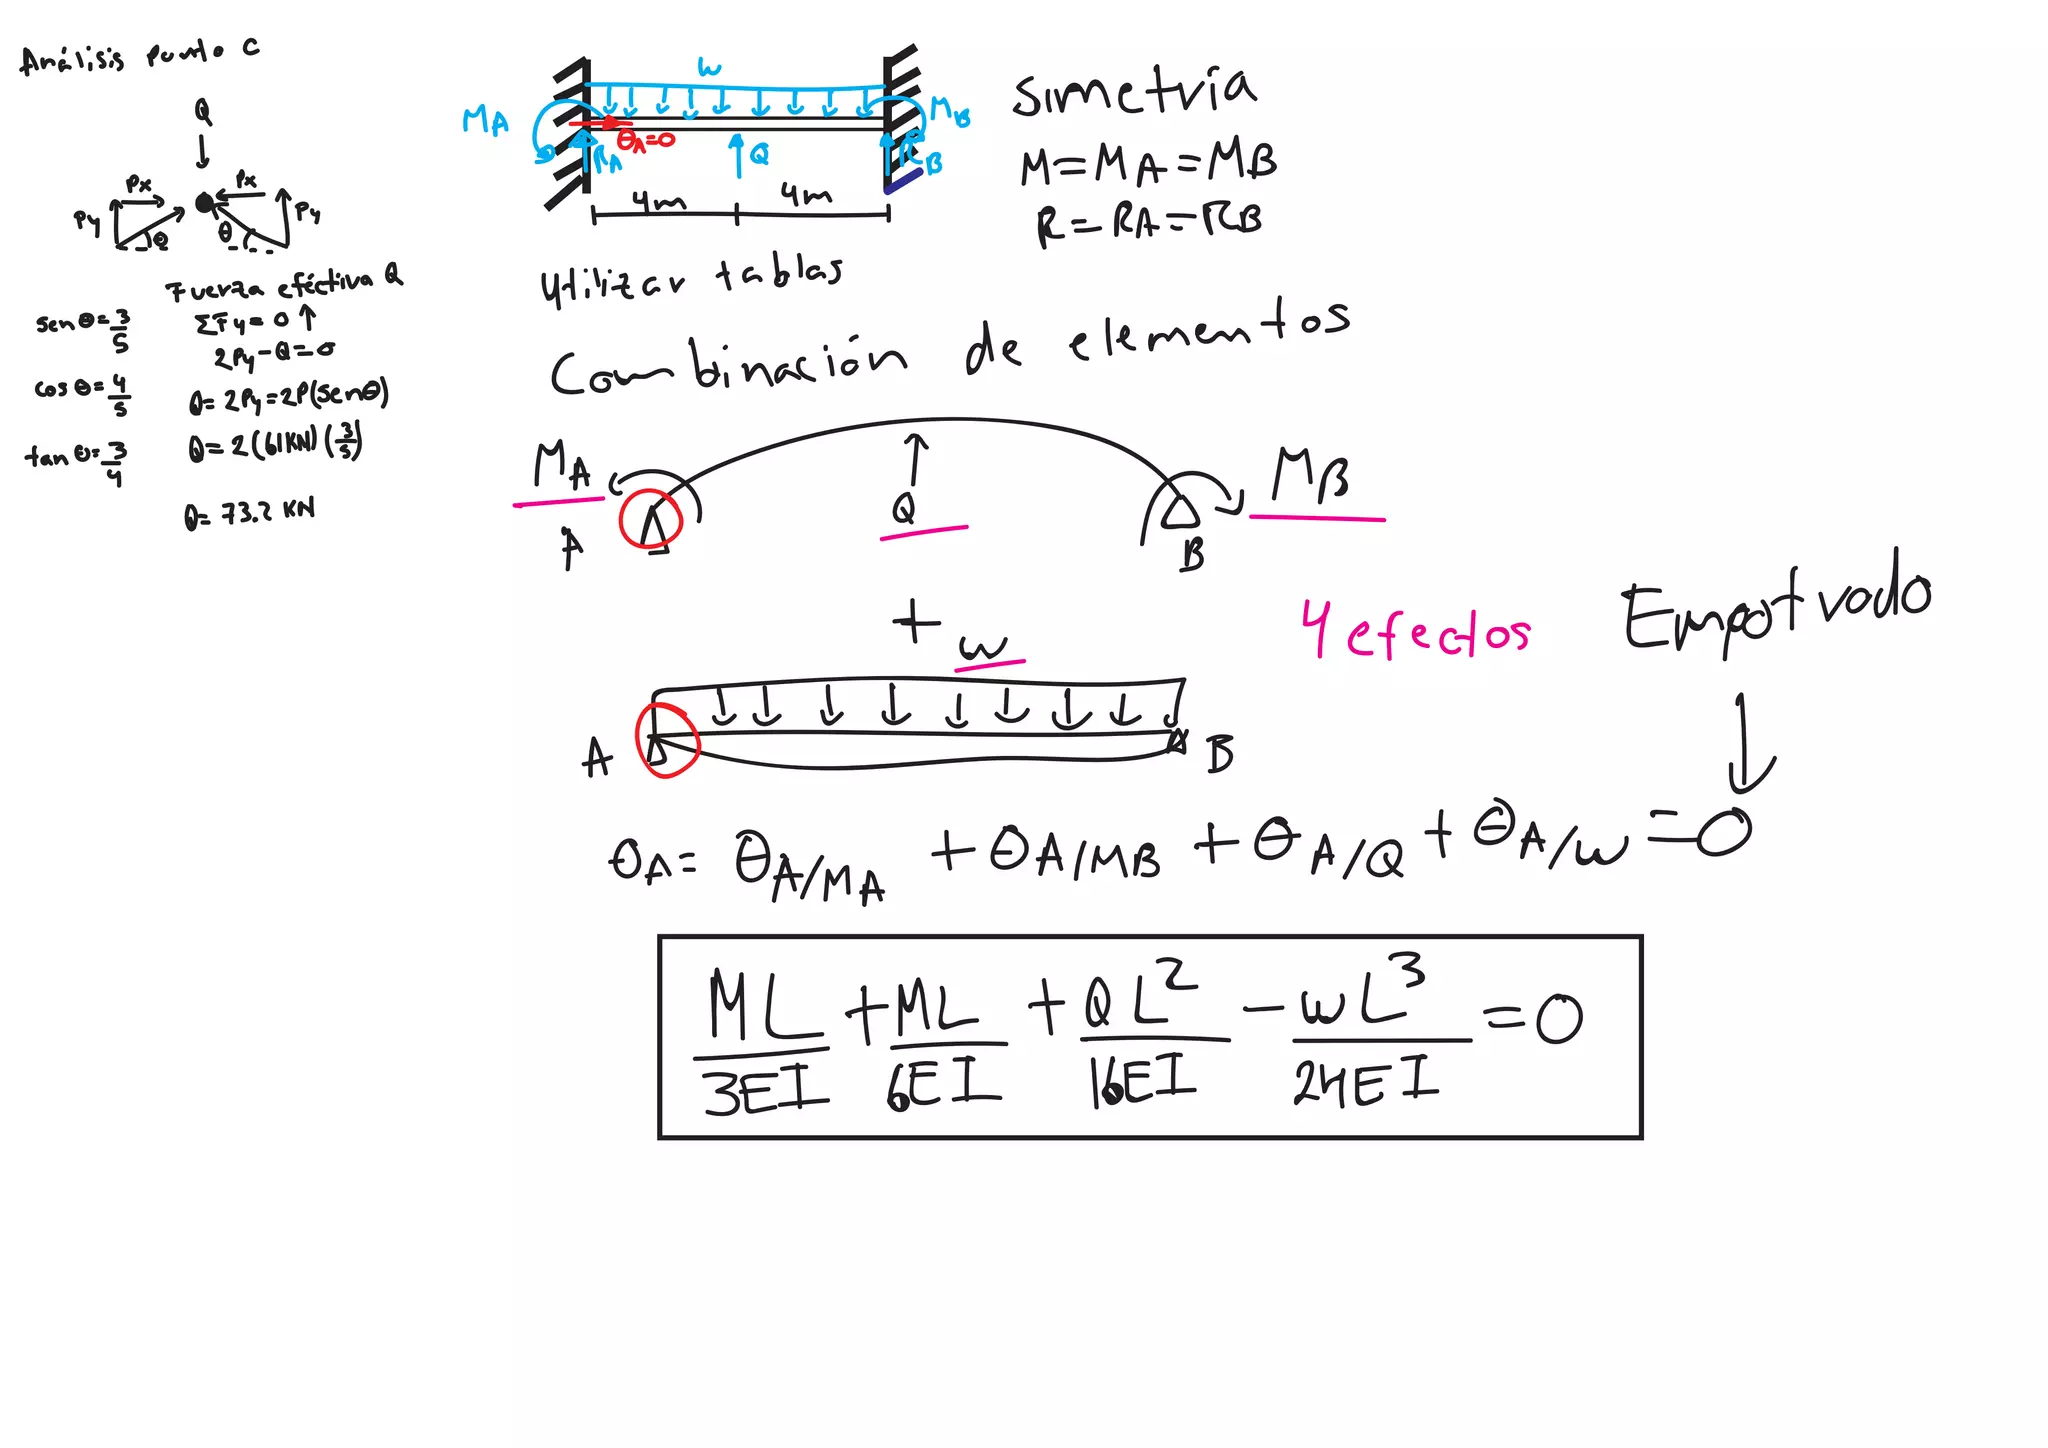 Análisis punto C
Q
Px Px
Py θ θ Py
Fuerza eféctiva Q
senθ=3/5
ΣFy=0↑
2Py-Q=0
cosθ=4/5
Q=2Py=2P(senθ)
tanθ=3/4
Q=2(61KN)(3/5)
Q=73.2 KN
w
MA MB
θA=0
RA Q RB
4m 4m
Simetría
M=MA=MB
R=RA=RB
Utilizar tablas
Combinación de elementos
MA MB
Q
A B
+
w
4 efectos
Empotrado
A B
θA= θA/MA + θA/MB + θA/Q + θA/w = 0
ML/3EI + ML/6EI + QL²/16EI - wL³/24EI = 0